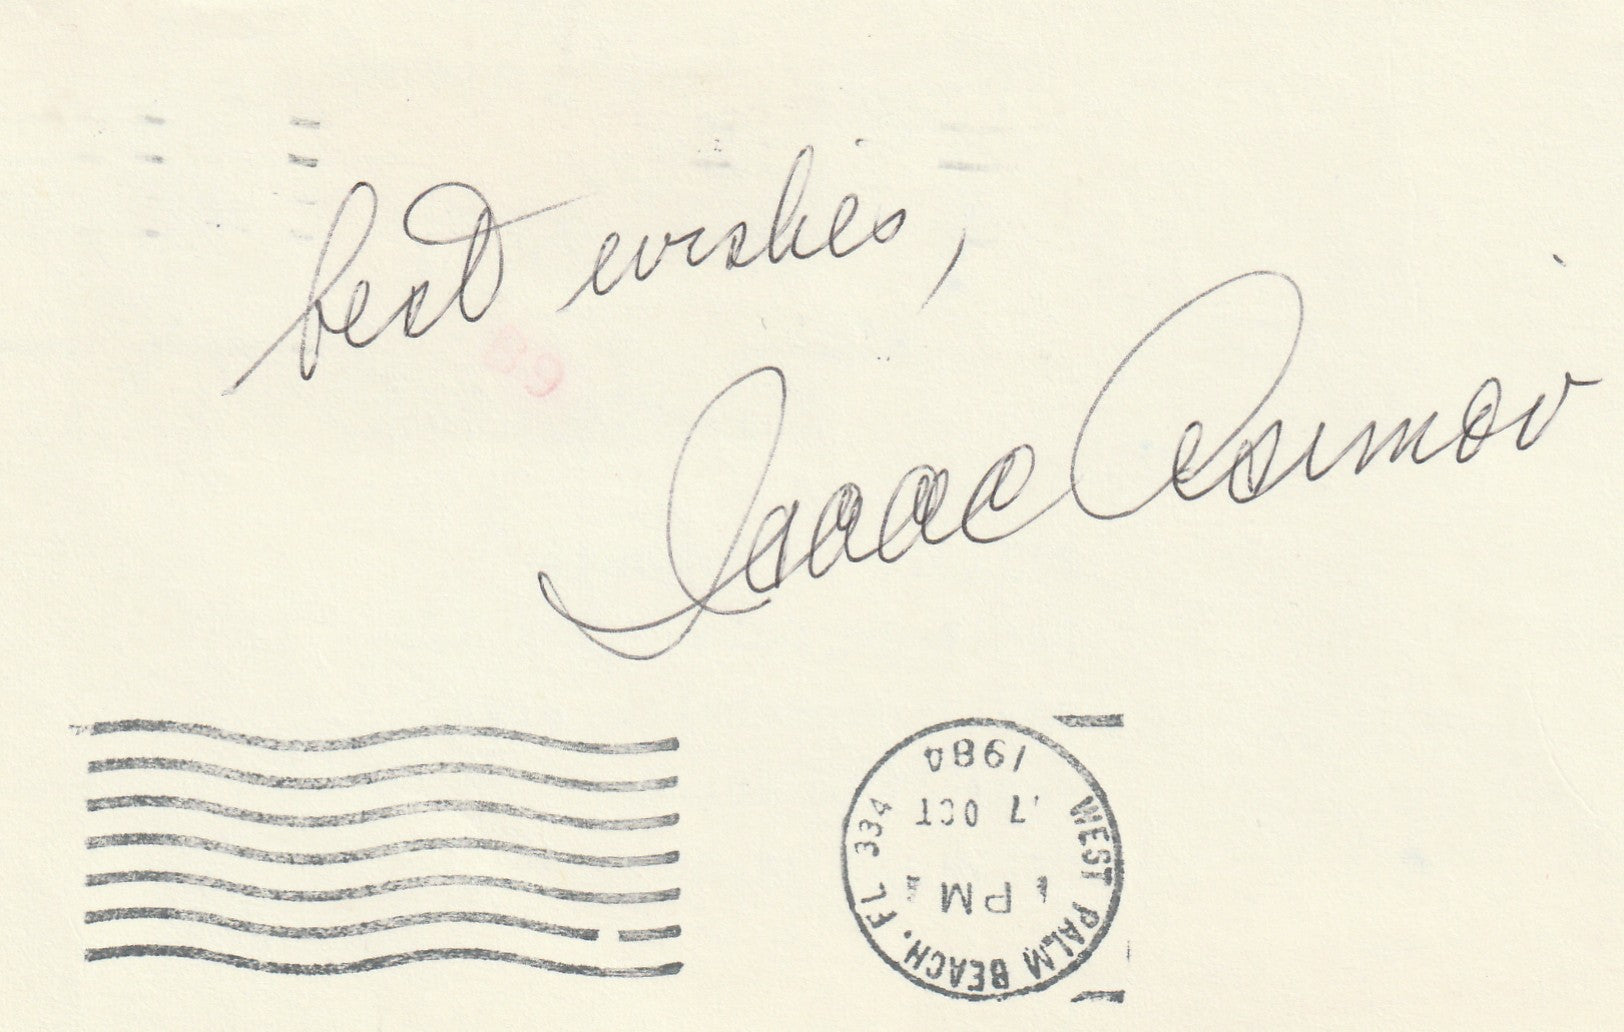 best wishes,
Isaac Asimov
WEST PALM BEACH, FL 334
PM
7 OCT
1984